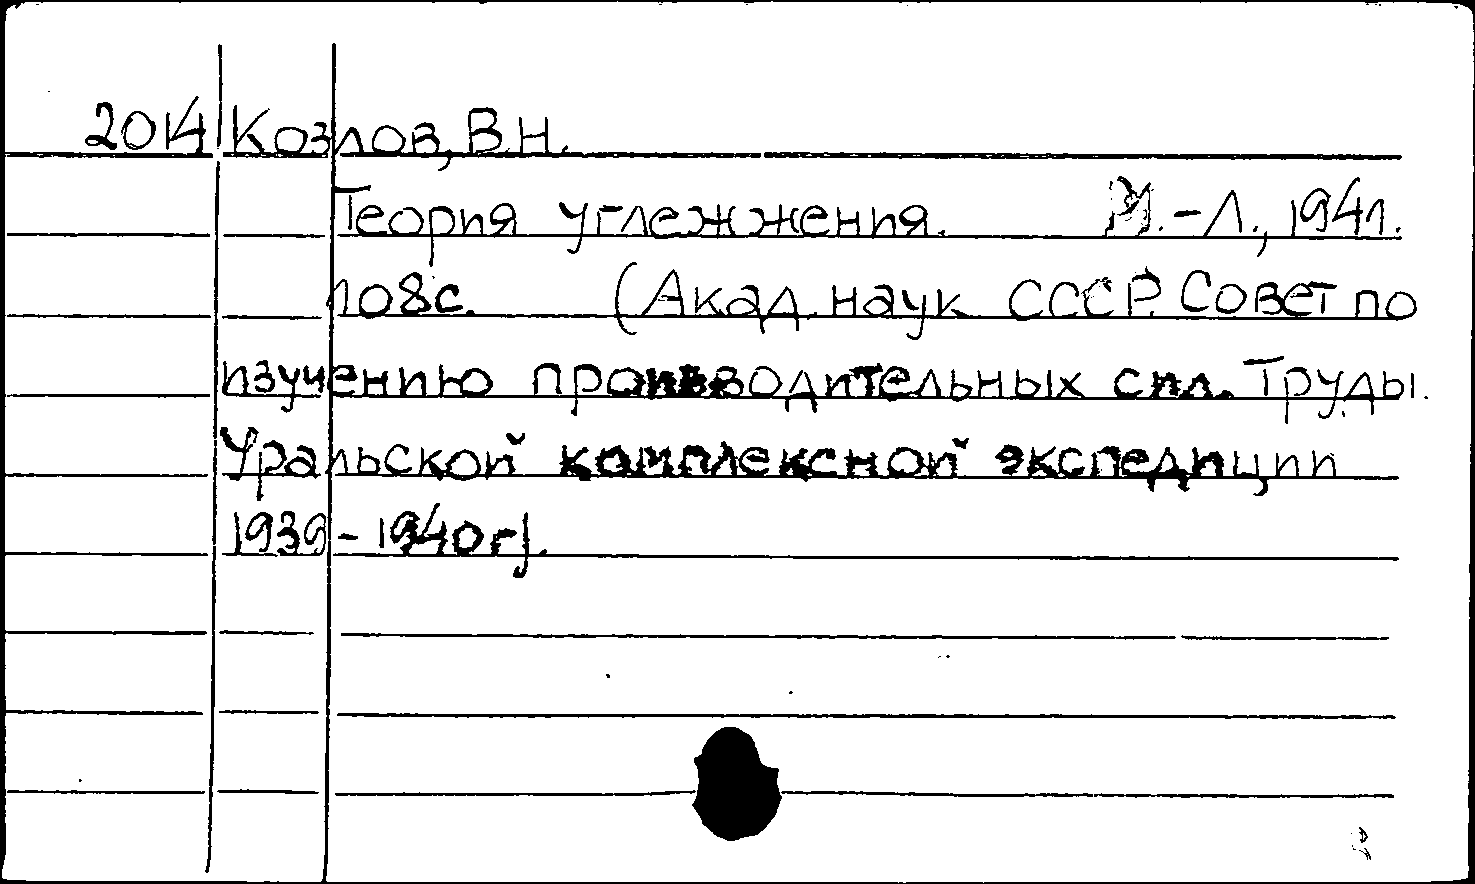 2014 Козлов, В.Н.
Теория углежжения. М.-Л., 1941.
108с. (Акад. наук СССР. Совет по
изучению производительных сил. Труды
Уральской комплексной экспедиции
1939-1940г).